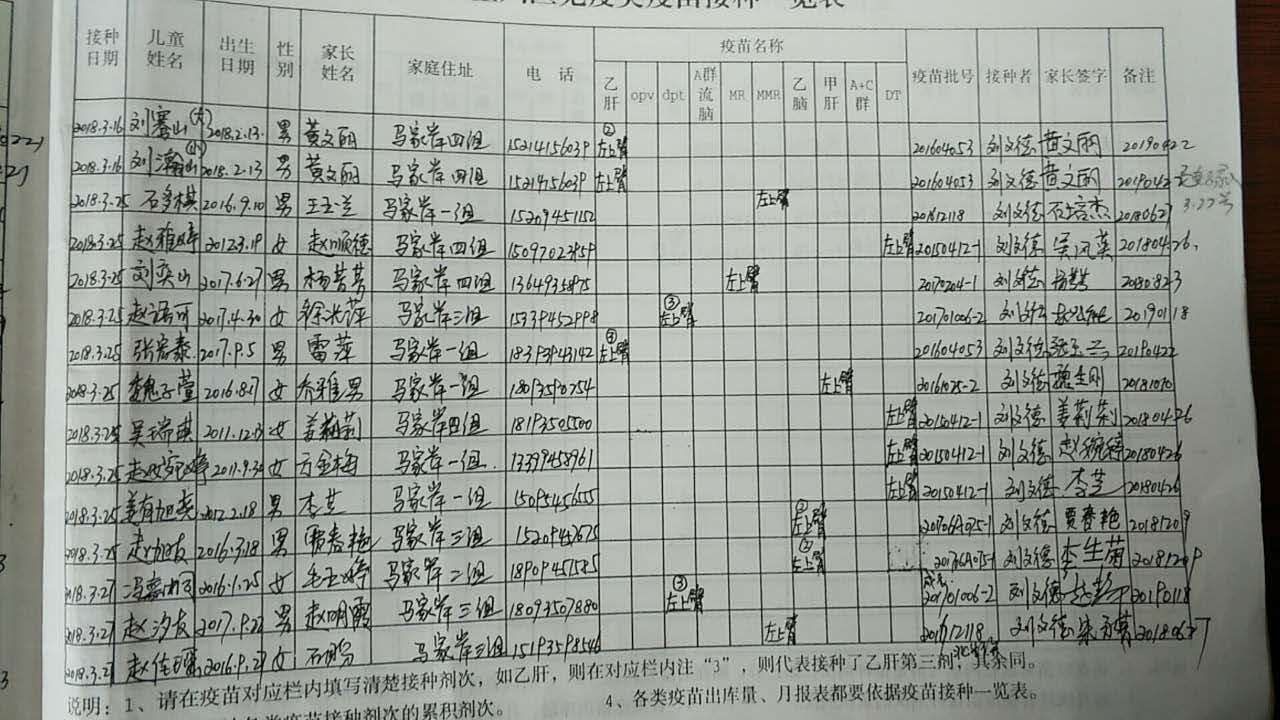 免疫类疫苗接种一览表
接种日期 儿童姓名 出生日期 性别 家长姓名 家庭住址 电话 疫苗名称 疫苗批号 接种者 家长签字 备注
乙肝 opv dpt A群流脑 MR MMR 乙脑 甲肝 A+C群 DT
2018.3.16 刘骞山(大) 2018.2.13. 男 黄文丽 马家岸四组 15214156039 ② 左上臂 201604053 刘文德 黄文丽 20190422
2018.3.16 刘瀚山(小) 2018.2.13 男 黄文丽 马家岸四组 15214156039 左上臂 201604053 刘文德 黄文丽 2019042
3.27号
2018.3.25 石多棋 2016.9.10 男 王玉兰 马家岸一组 15209451152 左上臂 201612118 刘文德 石培杰 20180627
2018.3.25 赵雅婷 2012.3.19 女 赵顺德 马家岸四组 15097023959 左上臂 20150412-1 刘文德 吴凤英 20180426
2018.3.25 刘奕山 2017.6.27 男 杨芳芳 马家岸四组 13649358975 左上臂 20170204-1 刘文德 20180823
2018.3.25 赵语可 2017.4.30 女 徐兴萍 马家岸三组 15339452998 ③ 左上臂 201701006-2 刘文德 20190118
2018.3.25 张宏泰 2017.9.5 男 雷萍 马家岸一组 18393943142 ③ 左上臂 201604053 刘文德 张玉兰 20190422
2018.3.25 魏子萱 2016.8.7 女 乔雅男 马家岸一组 18013590754 左上臂 20161025-2 刘文德 魏生刚 20181010
2018.3.25 吴瑞琪 2011.12.3 女 姜莉莉 马家岸四组 18193505500 左上臂 20150412-1 刘文德 姜莉莉 20180426
2018.3.25 2011.9.30 女 方金梅 马家岸一组 13399458961 左上臂 20150412-1 刘文德 赵婉婷 20180426
2018.3.25 姜有旭尧 2012.2.18 男 李芝 马家岸一组 1509545655 左上臂 20150412-1 刘文德 李芝 20180426
2018.3.25 2016.3.18 男 贾春艳 马家岸三组 15209442675 左上臂 201706A075-1 刘文德 贾春艳 20181209
2018.3.27 2016.1.25 女 毛玉婷 马家岸二组 18909451585 ② 左上臂 刘文德 李生菊 20181209
2018.3.27 赵汐友 2017.9.22 男 赵明霞 马家岸三组 18093507880 ③ 左上臂 201701006-2 刘文德 20190118
2018.3.27 2016.9.27 女 马家岸三组 15193598546 左上臂 201612118 刘文德 20180627
说明：1、请在疫苗对应栏内填写清楚接种剂次，如乙肝，则在对应栏内注“3”，则代表接种了乙肝第三剂，其余同。
疫苗接种剂次的累积剂次。 4、各类疫苗出库量、月报表都要依据疫苗接种一览表。